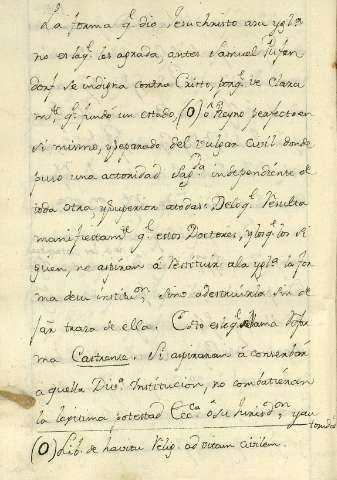 La forma q.e dio Jesuchristo a su ygl.a
no es la q.e les agrada, antes Samuel Pufen
dorf se indigna contra Cristo, porq.e ve clara
m.te q.e fundó un estado, (O) ô Reyno perfecto en
si mismo, y separado del vulgar civil, donde
puso una actoridad Sag.da independiente de
toda otra, y superior a todas. De lo q.e resulta
manifiestam.te q.e estos Doctores, y los q.e los si
guen, no aspiran á restituir a la ygl.a la for
ma de su institu.on, sino a destruirla sin de
jar traza de ella. Esto es lo q.e llama Refor
ma Castrense. Si aspiraran á conservar
aquella Div.a Institucion, no combatieran
la legitima potestad Ecc.ca ô su Jurisd.on, y au
toridad
(O) Lib. de havitu Relig. ad vitam civilem.